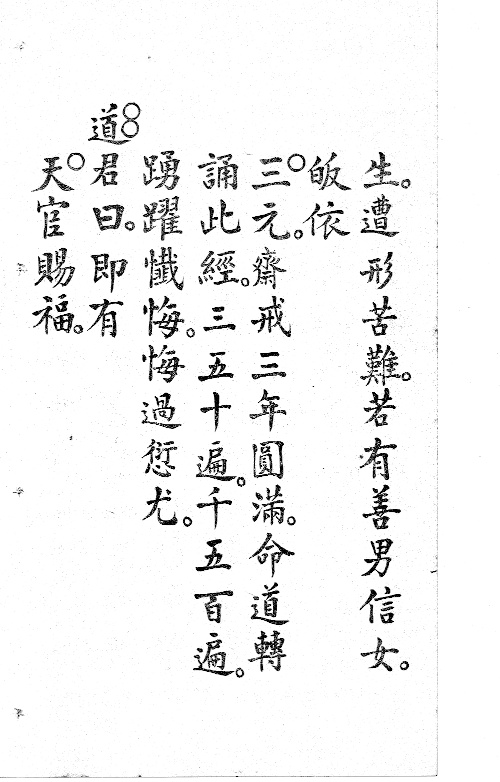 生。遭形苦難。若有善男信女。
皈依
○三元。齋戒三年圓滿。命道轉
誦此經。三五十遍。千五百遍。
踴躍懺悔。悔過愆尤。
○○道君曰。即有
○天官賜福。